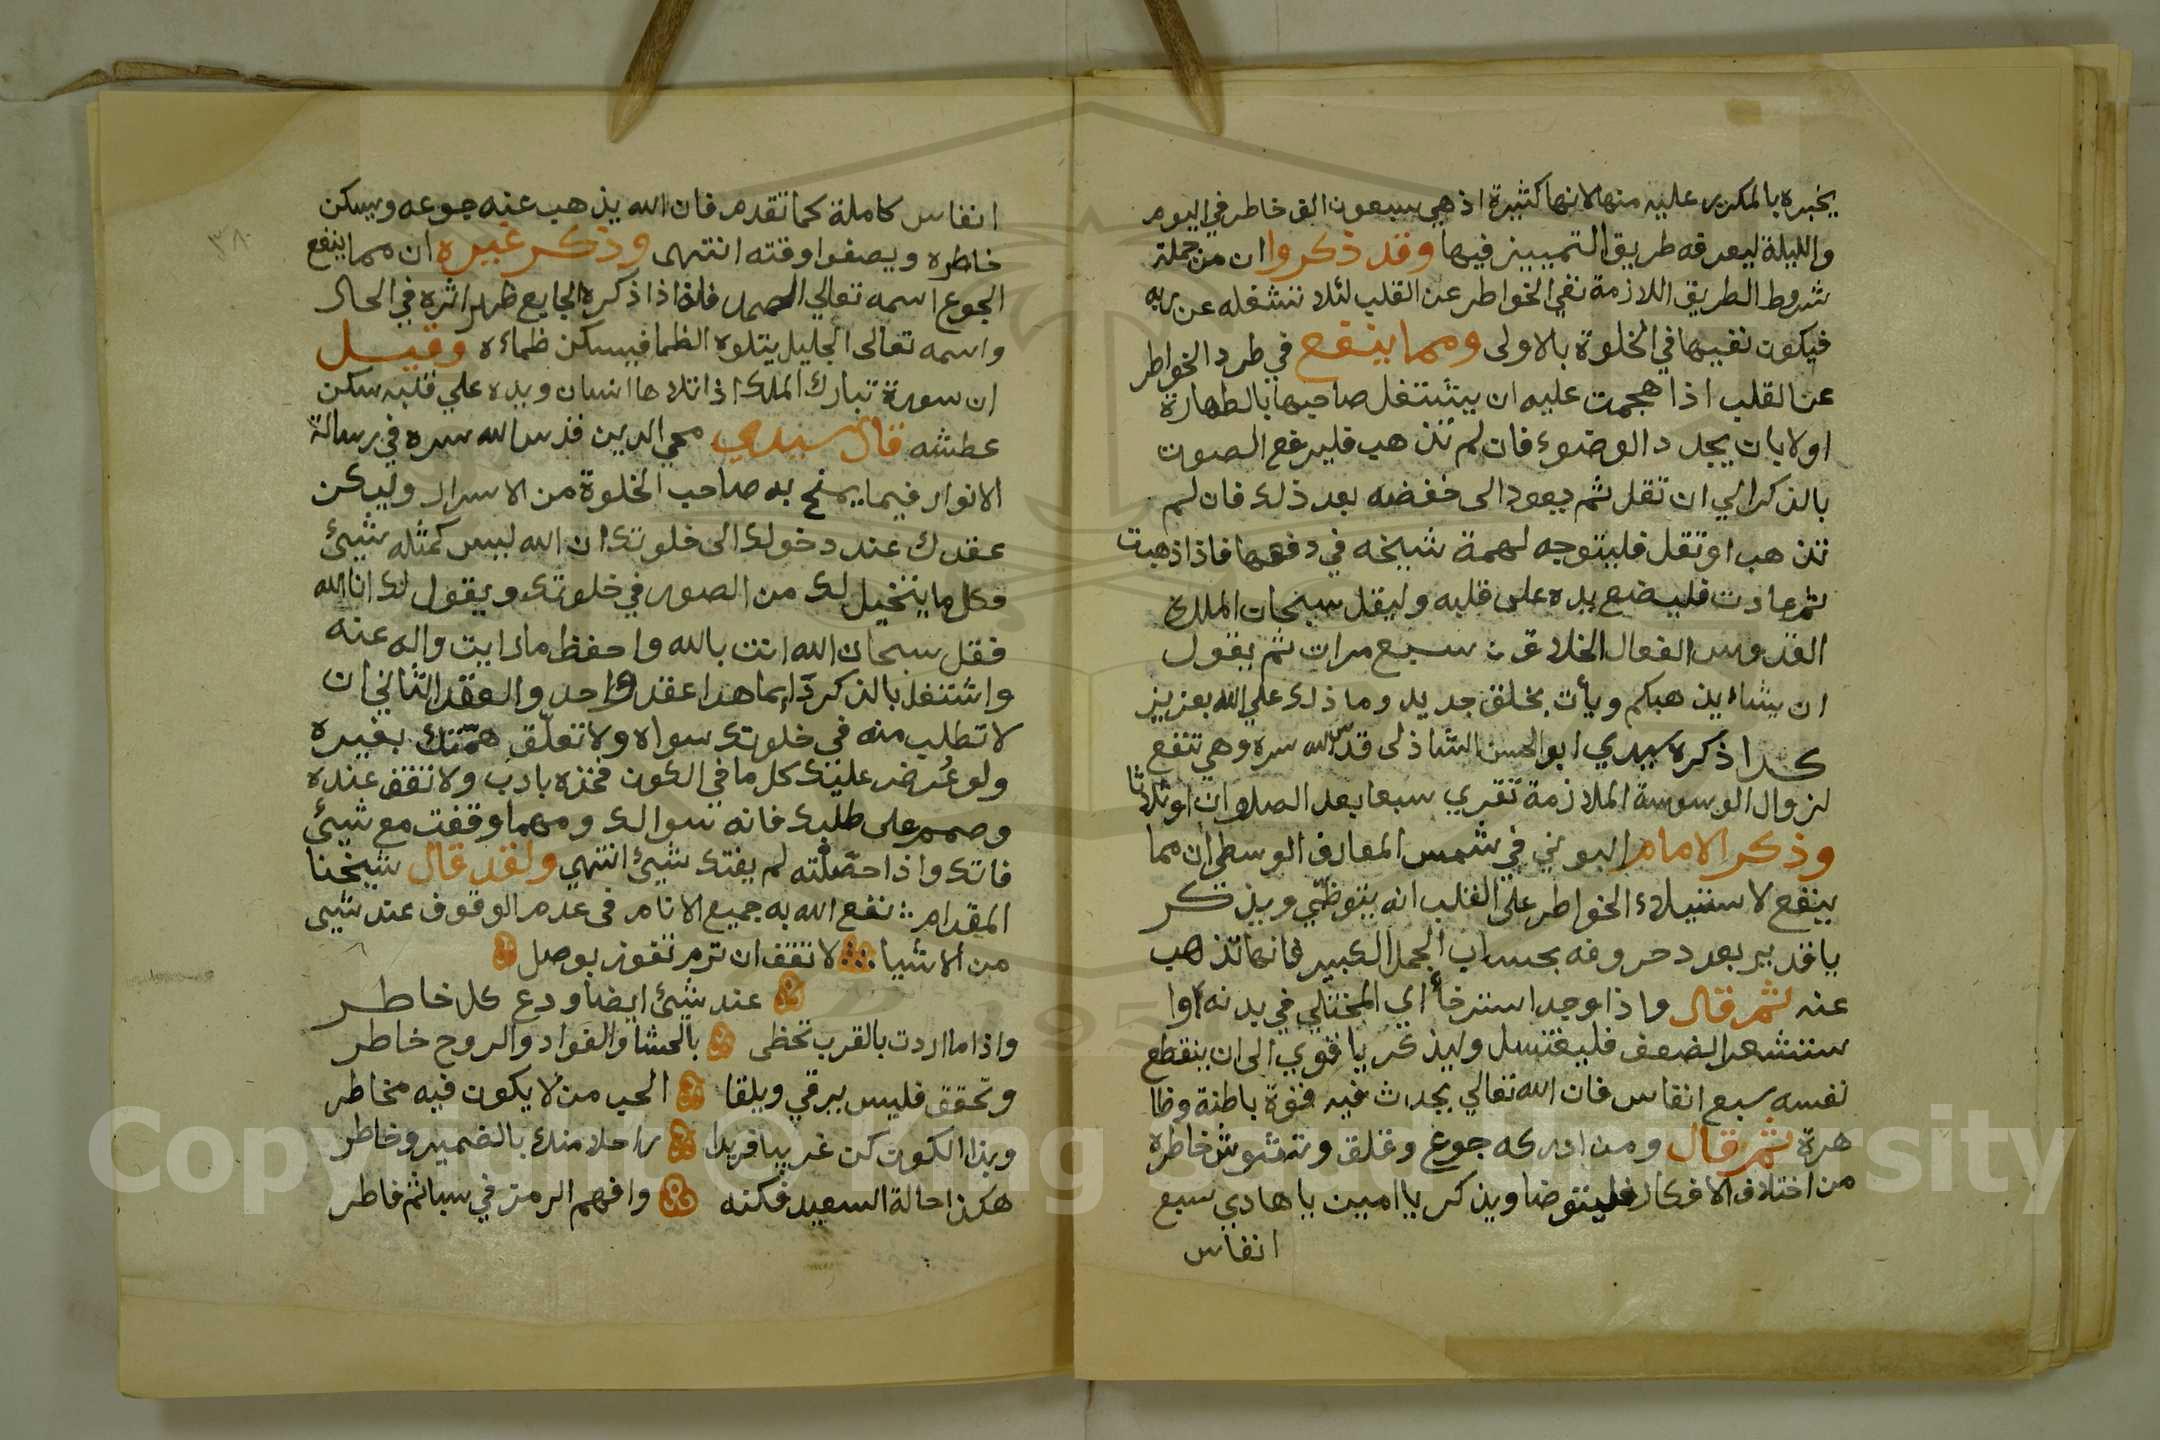 يخبره بالمكرر عليه منها لانها كثيرة اذ هي سبعون الف خاطر في اليوم
والليلة ليعرفه طريق التمييز فيها وقد ذكروا ان من جملة
شروط الطريق اللازمة نفي الخواطر عن القلب لئلا تشغله عن ربه
فيكون نفيها في الخلوة بالاولى ومما ينفع في طرد الخواطر
عن القلب اذا هجمت عليه ان يشتغل صاحبها بالطهارة
اولا بان يجدد الوضوء فان لم تذهب فليرفع الصوت
بالذكر الي ان تقل ثم يعود الى خفضه بعد ذلك فان لم
تذهب او تقل فليتوجه لهمة شيخه في دفعها فاذا ذهبت
ثم عادت فليضع يده على قلبه وليقل سبحان الملك
القدوس الفعال الخلاق سبع مرات ثم يقول
ان يشاء يذهبكم ويأت بخلق جديد وما ذلك علي الله بعزيز
كذا ذكره سيدي ابو الحسن الشاذلى قدس الله سره وهي تنفع
لزوال الوسوسة الملازمة تقري سبعا بعد الصلوات او ثلاثا
وذكر الامام البوني في شمس المعارف الوسطى ان مما
ينفع لاستيلاء الخواطر على القلب انه يتوضي ويذكر
يا قدير بعدد حروفه بحساب الجمل الكبير فانها تذهب
عنه ثم قال واذا وجد استرخأ اي المختلي في بدنه اوا
ستشعر الضعف فليغتسل وليذكر يا قوي الى ان ينقطع
نفسه سبع انفاس فان الله تعالي يحدث فيه قوة باطنة وظا
هرة ثم قال ومن ادركه جوع وقلق وتشوش خاطره
من اختلاف الافكار فليتوضا ويذكر يا امين يا هادي سبع
انفاس
٣٨
انفاس كاملة كما تقدم فان الله يذهب عنه جوعه ويسكن
خاطره ويصفوا وقته انتهى وذكر غيره ان مما ينفع
الجوع اسمه تعالي الصمد فانه اذا ذكره الجايع ظهر اثره في الحال
واسمه تعالى الجليل يتلوه الظما فيسكن ظماءه وقيل
ان سورة تبارك الملك اذا تلاها انسان ويده علي قلبه سكن
عطشه قال سيدي محي الدين قدس الله سره في رسالة
الانوار فيما يمنح به صاحب الخلوة من الاسرار وليكن
عقدك عند دخولك الى خلوتك ان الله ليس كمثله شيئ
فكل ما يتخيل لك من الصور في خلوتك ويقول لك انا الله
فقل سبحان الله انت بالله واحفظ ما رايت واله عنه
واشتغل بالذكر دايما هذا عقد واحد والعقد الثاني ان
لا تطلب منه في خلوتك سواه ولا تعلق همتك بغيره
ولو عرض عليك كل ما في الكون فخذه بادب ولا تقف عنده
وصمم على طلبك فانه سوالك ومهما وقفت مع شيئ
فاتك واذا حصلته لم يفتك شيئ انتهي ولقد قال شيخنا
المقدام نفع الله به جميع الانام فى عدم الوقوف عند شيى
من الاشيا لا تقف ان ترم تفوز بوصل
عند شيئ ايضا ودع كل خاطر
واذا ما اردت بالقرب تحظى بالحشا والفواد والروح خاطر
وتحقق فليس يرقي ويلقا الحب من لا يكون فيه مخاطر
وبذا الكون كن غريبا فريدا راحلا منك بالضمير وخاطر
هكذا حالة السعيد فكنه وافهم الرمز في سبا ثم فاطر
Copyright © King Saud University